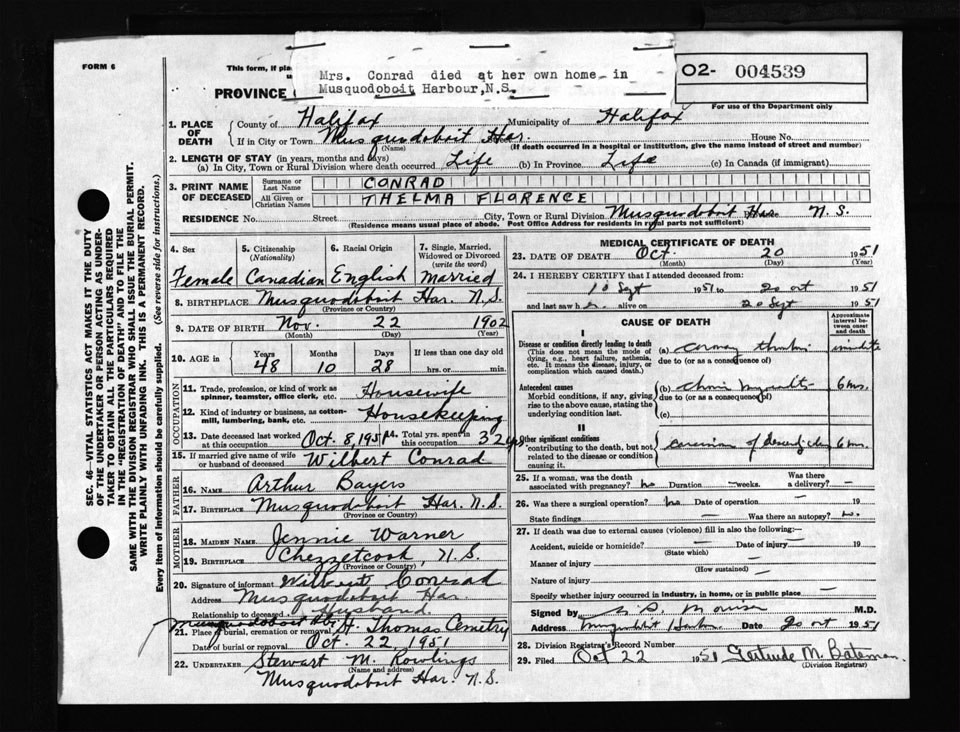 FORM 6
This form, if pla
PROVINCE
Mrs. Conrad died at her own home in
Musquodoboit Harbour, N.S.
O2- 004539
For use of the Department only
1. PLACE OF DEATH
County of Halifax Municipality of Halifax
If in City or Town Musquodoboit Har. House No.
(Name) (If death occurred in a hospital or institution, give the name instead of street and number)
2. LENGTH OF STAY (in years, months and days)
(a) In City, Town or Rural Division where death occurred Life (b) In Province Life (c) In Canada (if immigrant)
3. PRINT NAME OF DECEASED
Surname or Last Name CONRAD
All Given or Christian Names THELMA FLORENCE
RESIDENCE No. Street City, Town or Rural Division Musquodoboit Har. N.S.
(Residence means usual place of abode. Post Office Address for residents in rural parts not sufficient)
4. Sex Female
5. Citizenship (Nationality) Canadian
6. Racial Origin English
7. Single, Married, Widowed or Divorced (write the word) Married
8. BIRTHPLACE Musquodoboit Har. N.S.
(Province or Country)
9. DATE OF BIRTH Nov. 22 1902
(Month) (Day) (Year)
10. AGE in Years 48 Months 10 Days 28 If less than one day old hrs. or min.
OCCUPATION
11. Trade, profession, or kind of work as spinner, teamster, office clerk, etc. Housewife
12. Kind of industry or business, as cotton-mill, lumbering, bank, etc. Housekeeping
13. Date deceased last worked at this occupation Oct. 8, 1951
14. Total yrs. spent in this occupation 32 yrs
15. If married give name of wife or husband of deceased Wilbert Conrad
FATHER
16. NAME Arthur Bayers
17. BIRTHPLACE Musquodoboit Har. N.S.
(Province or Country)
MOTHER
18. MAIDEN NAME Jennie Warner
19. BIRTHPLACE Chezzetcook, N.S.
(Province or Country)
20. Signature of informant Wilbert Conrad
Address Musquodoboit Har.
Relationship to deceased Husband
Musquodoboit Hbr.
21. Place of burial, cremation or removal St. Thomas Cemetry
Date of burial or removal Oct. 22, 1951
22. UNDERTAKER Stewart M. Rowlings
(Name and address)
Musquodoboit Har. N.S.
MEDICAL CERTIFICATE OF DEATH
23. DATE OF DEATH Oct. 20 1951
(Month) (Day) (Year)
24. I HEREBY CERTIFY that I attended deceased from:
10 Sept 1951 to 20 Oct 1951
and last saw h alive on 20 Sept 1951
CAUSE OF DEATH
Approximate interval between onset and death
I
Disease or condition directly leading to death
(This does not mean the mode of dying, e.g., heart failure, asthenia, etc. It means the disease, injury, or complication which caused death.)
(a)
due to (or as a consequence of)
Antecedent causes
Morbid conditions, if any, giving rise to the above cause, stating the underlying condition last.
(b) 6 ms.
due to (or as a consequence of)
(c)
II
Other significant conditions contributing to the death, but not related to the disease or condition causing it.
of 6 ms.
25. If a woman, was the death associated with pregnancy? No Duration – weeks. Was there a delivery? –
26. Was there a surgical operation? No Date of operation – 19
State findings – Was there an autopsy? No.
27. If death was due to external causes (violence) fill in also the following:–
Accident, suicide or homicide? – Date of injury – 19
(State which)
Manner of injury
(How sustained)
Nature of injury
Specify whether injury occurred in industry, in home, or in public place –
Signed by M.D.
Address Date 20 Oct 1951
28. Division Registrar's Record Number
29. Filed Oct 22 1951 Gertrude M. Bateman
(Division Registrar)
SEC. 46 - VITAL STATISTICS ACT MAKES IT THE DUTY
OF THE UNDERTAKER OR PERSON ACTING AS UNDER-
TAKER TO OBTAIN ALL THE PARTICULARS REQUIRED
IN THE "REGISTRATION OF DEATH" AND TO FILE THE
SAME WITH THE DIVISION REGISTRAR WHO SHALL ISSUE THE BURIAL PERMIT.
WRITE PLAINLY WITH UNFADING INK. THIS IS A PERMANENT RECORD.
Every item of information should be carefully supplied. (See reverse side for instructions.)